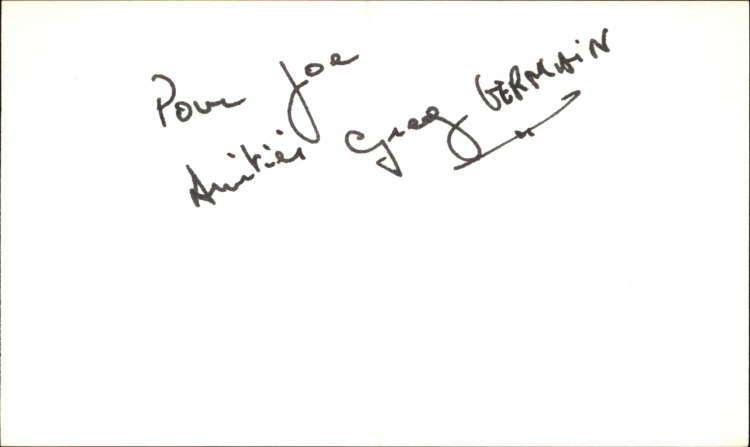 Pour Joe
Amitiés Greg GERMAIN